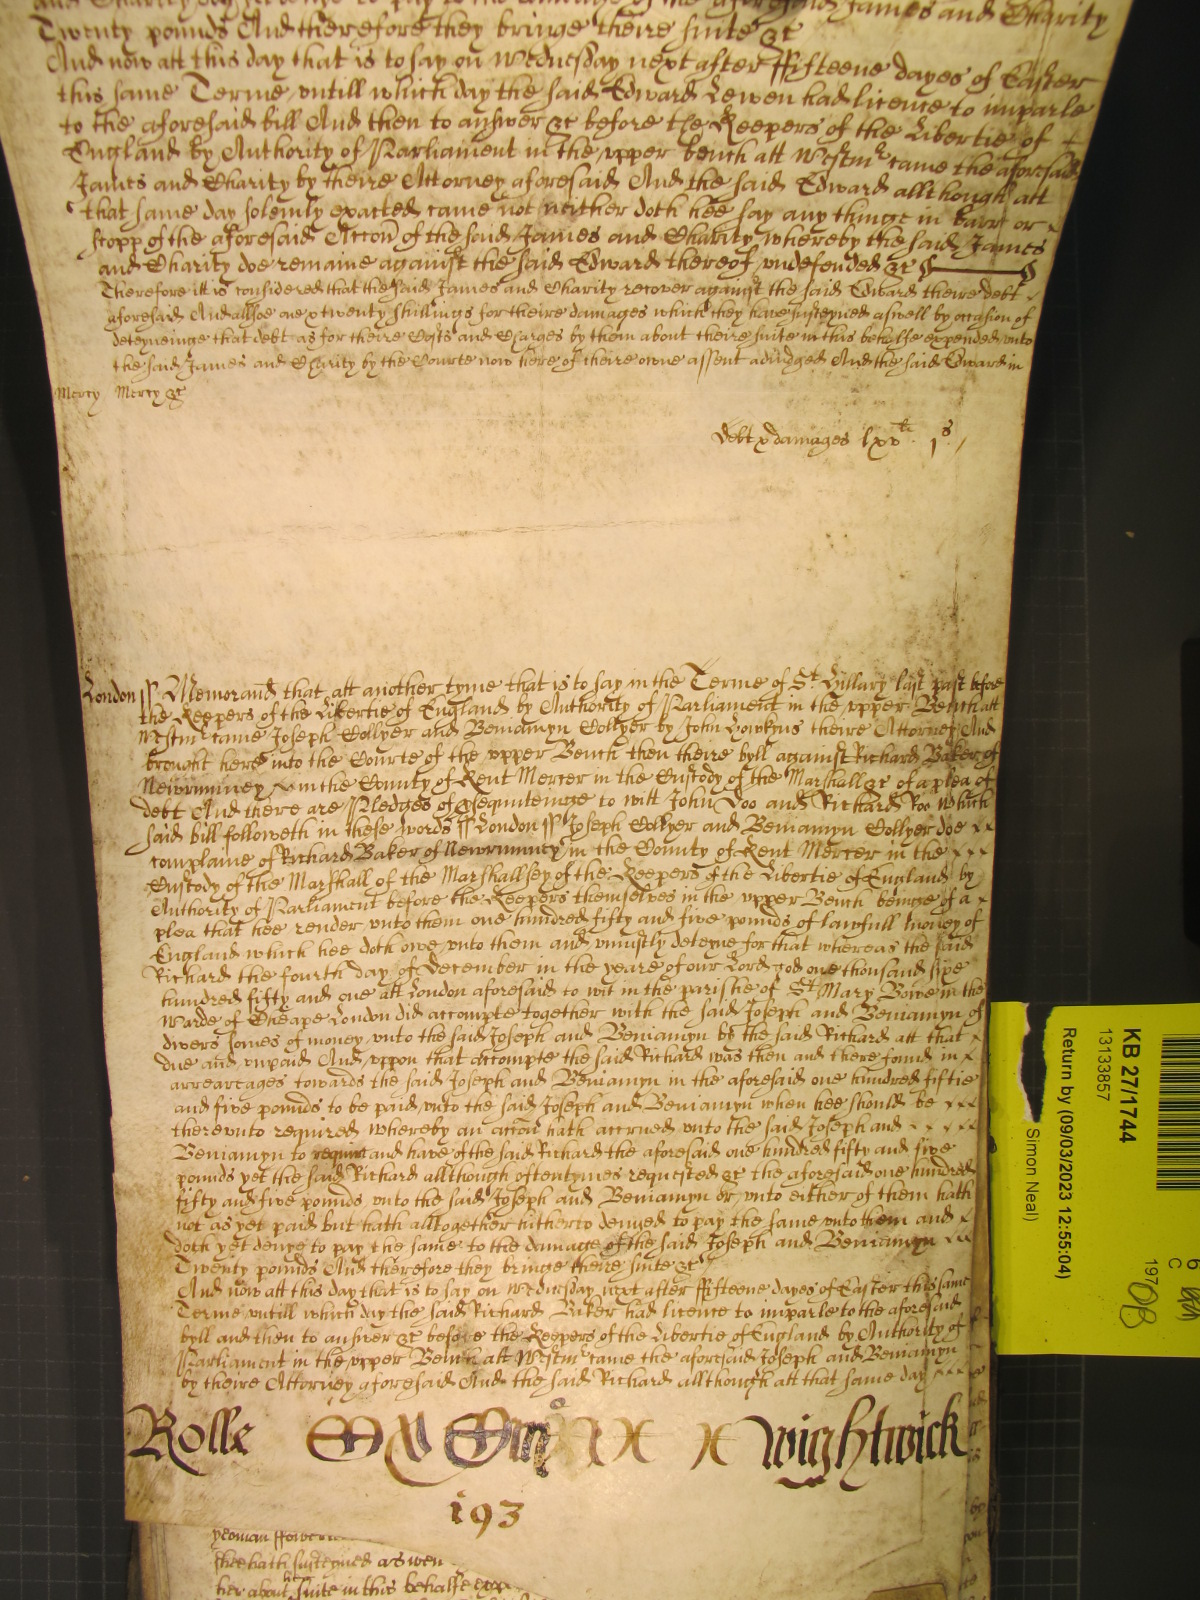 Twenty pounds And therefore they bringe theire suite &c
And now att this day that is to say on Wednesday next after ffifteene dayes of Easter
this same Terme, untill which day the said Edward Lewen had licence to imparle
to the aforesaid bill And then to answer &c before the Keepers of the Libertie of
England by Authority of Parliament in the upper bench att Westmr came the aforesaid
James and Charity by theire Attorney aforesaid And the said Edward allthough att
that same day solemly exacted came not neither doth hee say any thinge in barr or
stopp of the aforesaid Accon of the said James and Charity whereby the said James
and Charity doe remaine against the said Edward thereof undefended &c
Therefore itt is considered that the said James and Charity recover against the said Edward theire debt
aforesaid And allsoe one & twenty shillings for theire damages which they have susteyned aswell by occasion of
deteyneinge that debt as for theire Costs and Charges by them about theire suite in this behalfe expended unto
the said James and Charity by the Courte now here of theire owne assent adiudged And the said Edward in
Mercy Mercy &c
Debt & damages lxxli 1s
London ss Memorand that att another tyme that is to say in the Terme of St Hillary last past before
the Keepers of the Libertie of England by Authority of Parliament in the upper Bench att
Westmr came Joseph Collyer and Beniamyn Collyer by John Hoskyns theire Attorney And
brought here into the Courte of the upper Bench then theire byll against Richard Baker of
Newrumney in the County of Kent Mercer in the Custody of the Marshall &c of a plea of
debt And there are Pledges of to witt John Doo and Richard Roo Which
said bill followeth in these words ss London ss Joseph Collyer and Beniamyn Collyer doe
complaine of Richard Baker of Newrumney in the County of Kent Mercer in the
Custody of the Marshall of the Marshallsey of the Keepers of the Libertie of England by
Authority of Parliament before the Keepers themselves in the upper Bench beinge of a
plea that hee render unto them one hundred fifty and five pounds of lawfull money of
England which hee doth owe unto them and uniustly deteyne for that whereas the said
Richard the fourth day of December in the yeare of our Lord god one thousand sixe
hundred fifty and one att London aforesaid to wit in the parishe of St Mary Bowe in the
Warde of Cheape London did accompte together with the said Joseph and Beniamyn of
divers somes of money unto the said Joseph and Beniamyn by the said Richard att that
due and unpaid And uppon that accompte the said Richard was then and there found in
arrearages towards the said Joseph and Beniamyn in the aforesaid one hundred fiftie
and five pounds to be paid unto the said Joseph and Beniamyn when hee should be
thereunto required whereby an accon hath accrued unto the said Joseph and
Beniamyn to require and have of the said Richard the aforesaid one hundred fifty and five
pounds yet the said Richard allthough oftentymes requested &c the aforesaid one hundred
fifty and five pounds unto the said Joseph and Beniamyn or unto either of them hath
not as yet paid but hath alltogether hitherto denyed to pay the same unto them and
doth yet denye to pay the same to the damage of the said Joseph and Beniamyn
Twenty pounds And therefore they bringe theire suite &c
And now att this day that is to say on Wednesday next after ffifteene dayes of Easter this same
Terme untill which day the said Richard Baker had licence to imparle to the aforesaid
byll and then to answer &c before the Keepers of the Libertie of England by Authority of
Parliament in the upper Bench att Westmr came the aforesaid Joseph and Beniamyn
by theire Attorney aforesaid And the said Richard allthough att that same day
Rolle Wightwick
193
yeoman
shee hath susteyned aswell
her about suite in this behalfe
KB 27/1744
13133857
Return by (09/03/2023 12:55:04)
Simon Neal)